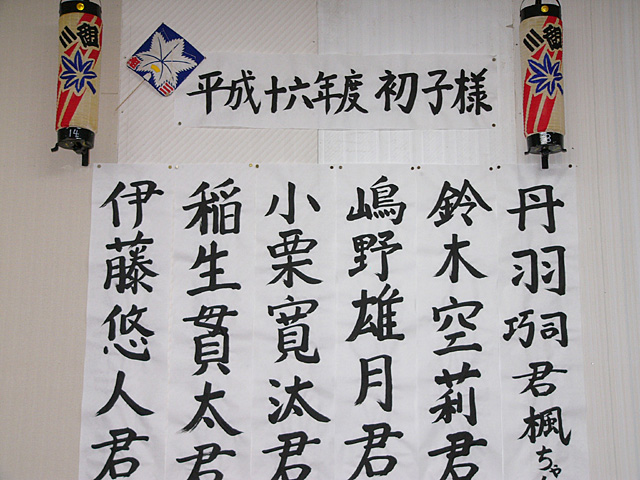 平成十六年度 初子様
丹羽巧司君楓ちゃん
鈴木空莉君
嶋野雄月君
小栗寛汰君
稲生貫太君
伊藤悠人君
三御
三御